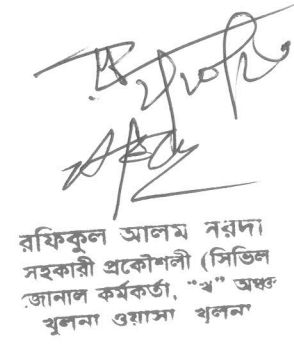 রফিকুল আলম সরদা
সহকারী প্রকৌশলী (সিভিল
জোনাল কর্মকর্তা, "খ" অঞ্চ
খুলনা ওয়াসা খুলনা